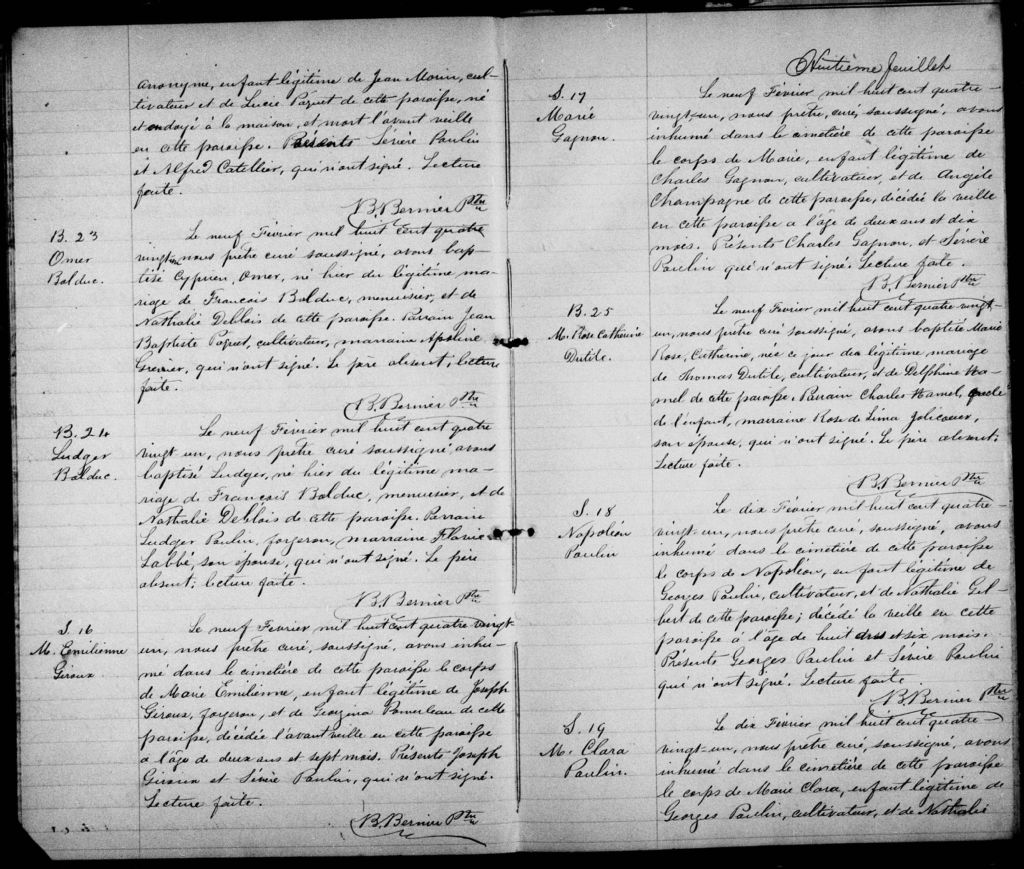 anonyme, enfant légitime de Jean Morin, cul-
tivateur et de Lucie Paquet de cette paroisse, né
et ondoyé à la maison, et mort l'avant veille
en cette paroisse. Présents Sévère Paulin
et Alfred Catellier, qui n'ont signé. Lecture
faite.
B. Bernier Ptre
B. 23
Omer
Bolduc.
Le neuf Février mil huit cent quatre
vingt un nous prêtre curé soussigné, avons bap-
tisé Cyprien, Omer, né hier du légitime ma-
riage de Francois Bolduc, menuisier, et de
Nathalie Deblois de cette paroisse. Parrain Jean
Baptiste Paquet, cultivateur, marraine Apoline
Grenier, qui n'ont signé. Le père absent, lecture
faite.
B. Bernier Ptre
B. 24
Ludger
Bolduc.
Le neuf Février mil huit cent quatre
vingt un, nous prêtre curé soussigné, avons
baptisé Ludger, né hier du légitime ma-
riage de François Bolduc, menuisier, et de
Nathalie Deblois de cette paroisse. Parrain
Ludger Paulin, forgeron, marraine Flavie
Labbé, son épouse, qui n'ont signé. Le père
absent; lecture faite.
B. Bernier Ptre
S. 16
M. Emilienne
Giroux
Le neuf Février mil huit cent quatre vingt
un, nous prêtre curé, soussigné, avons inhu-
mé dans le cimetière de cette paroisse le corps
de Marie Emilienne, enfant légitime de Joseph
Giroux, forgeron, et de Georgina Pomerleau de cette
paroisse, décédée l'avant veille en cette paroisse
à l'âge de deux ans et sept mois. Présents Joseph
Giroux et Sévère Paulin, qui n'ont signé.
Lecture faite.
B. Bernier Ptre
Huitième feuillet
S. 17
Marie
Gagnon.
Le neuf Février mil huit cent quatre-
vingt-un, nous prêtre, curé, soussigné, avons
inhumé dans le cimetière de cette paroisse
le corps de Marie, enfant légitime de
Charles Gagnon, cultivateur, et de Angèle
Champagne de cette paroisse, décédé la veille
en cette paroisse à l'âge de deux ans et dix
mois. Présents Charles Gagnon, et Sévère
Paulin qui n'ont signé. Lecture faite.
B. Bernier Ptre
B. 25
M. Rose Catherine
Dutile.
Le neuf Février mil huit cent quatre vingt-
un, nous prêtre curé soussigné, avons baptisé Marie
Rose, Catherine, née ce jour du légitime mariage
de Thomas Dutile, cultivateur, et de Delphine Ha-
mel de cette paroisse. Parrain Charles Hamel, oncle
de l'enfant, marraine Rose de Lima Jolicoeur,
son épouse, qui n'ont signé. Le père absent;
Lecture faite.
B. Bernier Ptre
S. 18
Napoléon
Paulin
Le dix Février mil huit cent quatre-
vingt-un, nous prêtre curé, soussigné, avons
inhumé dans le cimetière de cette paroisse
le corps de Napoléon, enfant légitime de
Georges Paulin, cultivateur, et de Nathalie Gil-
bert de cette paroisse; décédé la veille en cette
paroisse à l'âge de huit ans et six mois.
Présents Georges Paulin et Sévère Paulin
qui n'ont signé. Lecture faite
B. Bernier Ptre
S. 19
M. Clara
Paulin.
Le dix Février mil huit cent quatre-
vingt-un, nous prêtre curé, soussigné, avons
inhumé dans le cimetière de cette paroisse
le corps de Marie Clara, enfant légitime de
Georges Paulin, cultivateur, et de Nathalie